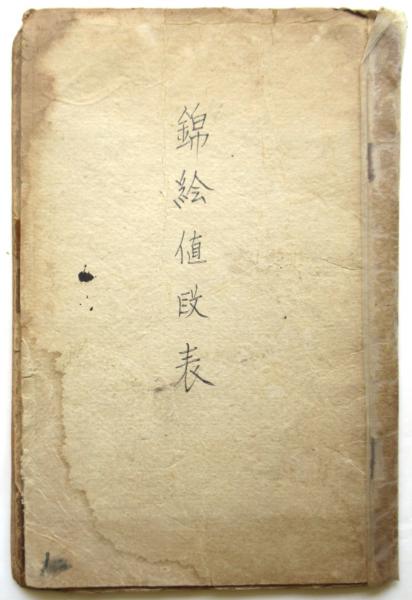 錦絵値段表